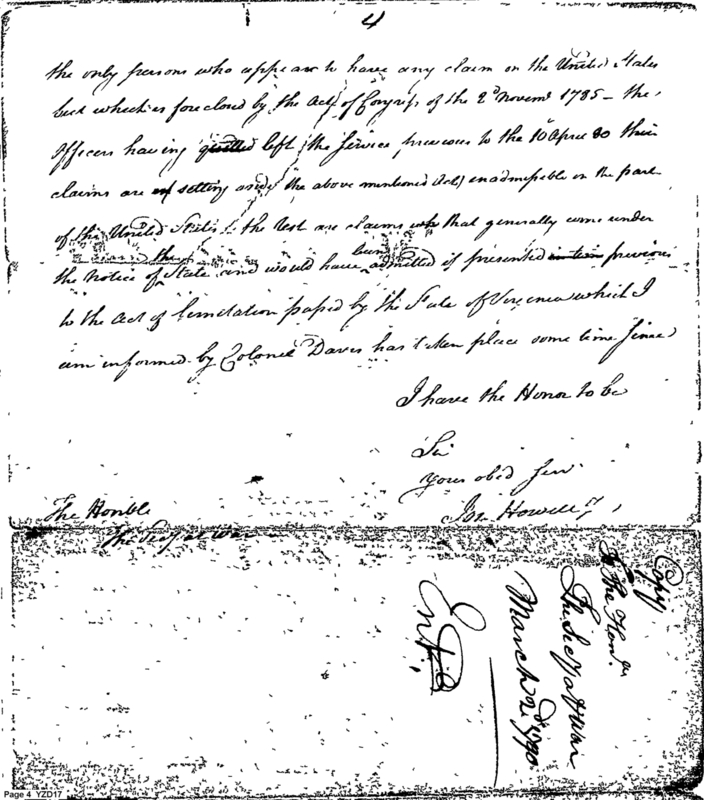 4
the only persons who appear to have any claim on the United States
but which is foreclosed by the Act of Congress of the 2d Novemr 1785 - the
Officers having quitted left the service previous to the 10 April 80 their
claims are setting aside the above mentioned Act) inadmissible on the part
of the United States. the rest are claims who that generally come under
the notice of the State and would have been admitted if presented in time previous
to the Act of limitation passed by the State of Virginia which I
am informed by Colonel Davies has taken place some time since
I have the Honor to be
Sir
your obed Serv
Jos. Howell Jr
The Honble
The Secy at War
Copy
To the Honble
The Secy at War
March 2d 1790
Entd
Page 4 YZD17